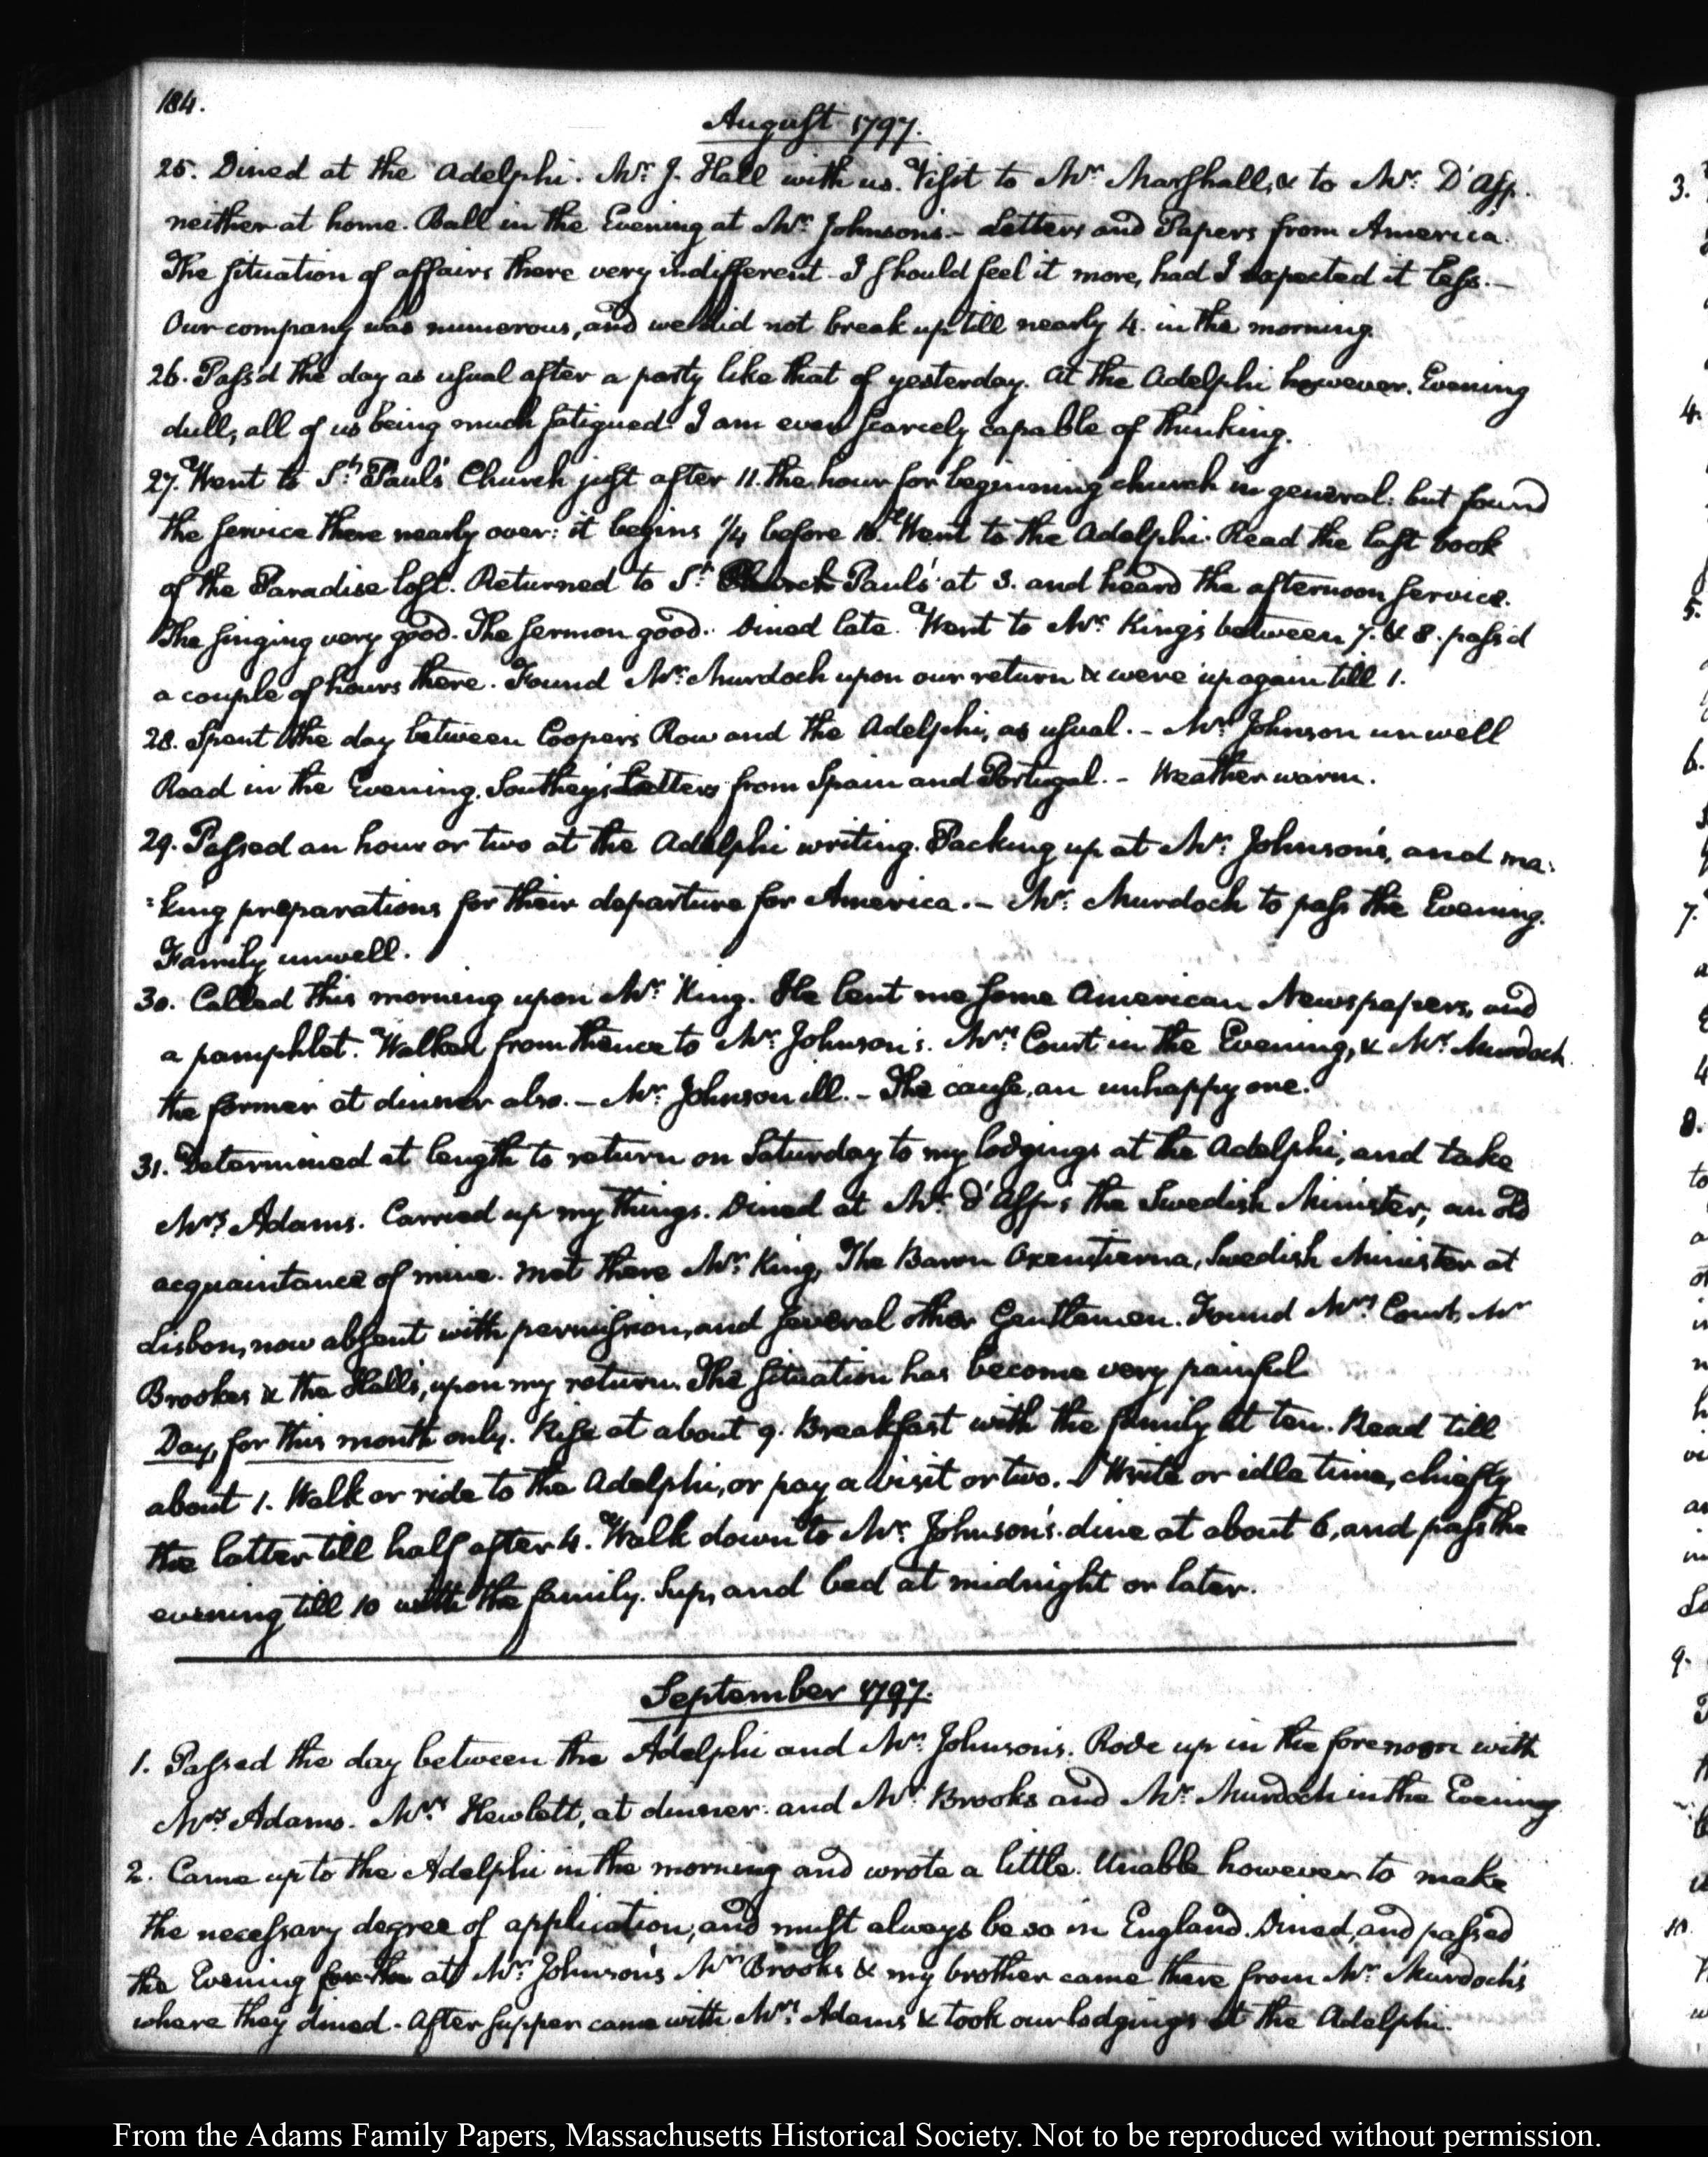 184.
August 1797.
25. Dined at the Adelphi. Mr. J. Hall with us. Visit to Mr. Marshall, & to Mr. D'Asp.
neither at home. Ball in the Evening at Mr. Johnson's.– Letters and Papers from America.
The situation of affairs there very indifferent – I should feel it more, had I expected it less.–
Our company was numerous, and we did not break up till nearly 4. in the morning.
26. Pass'd the day as usual after a party like that of yesterday. At the Adelphi however. Evening
dull, all of us being much fatigued. I am even scarcely capable of thinking.
27. Went to St. Paul's Church just after 11. the hour for beginning church in general: but found
the service there nearly over: it begins 1/4 before 10. Went to the Adelphi. Read the last book
of the Paradise lost. Returned to St. Church Pauls' at 3. and heard the afternoon service.
The singing very good. The sermon good. Dined late. Went to Mr. King's between 7. & 8. pass'd
a couple of hours there. Found Mr. Murdoch upon our return & were up again till 1.
28. Spent the day between Coopers Row and the Adelphi, as usual. – Mr. Johnson unwell
Read in the Evening. Southey's Letters from Spain and Portugal. – Weather warm.
29. Passed an hour or two at the Adelphi writing. Packing up at Mr. Johnson's, and ma:
:king preparations for their departure for America. – Mr. Murdoch to pass the Evening.
Family unwell.
30. Called this morning upon Mr. King. He lent me some American Newspapers, and
a pamphlet. Walked from thence to Mr. Johnson's. Mrs. Court in the Evening, & Mr. Murdoch
the former at dinner also. – Mr. Johnson ill. – The cause, an unhappy one.
31. Determined at length to return on Saturday to my lodgings at the Adelphi, and take
Mrs. Adams. Carried up my things. Dined at Mr. d'Asp's the Swedish Minister, an old
acquaintance of mine. Met there Mr. King, The Baron Oxenstierna, Swedish Minister at
Lisbon, now absent with permission, and several other Gentlemen. Found Mrs. Court, Mr
Brookes & the Halls, upon my return. The situation has become very painful
Day, for this month only. Rise at about 9. Breakfast with the family at ten. Read till
about 1. Walk or ride to the Adelphi, or pay a visit or two. Write or idle time, chiefly
the latter till half after 4. Walk down to Mr. Johnson's. dine at about 6, and pass the
evening till 10 with the family. Sup, and bed at midnight or later.
September 1797.
1. Passed the day between the Adelphi and Mr. Johnson's. Rode up in the forenoon with
Mrs. Adams. Mrs. Hewlett, at dinner. and Mr. Brooks and Mr. Murdoch in the Evening
2. Came up to the Adelphi in the morning and wrote a little. Unable however to make
the necessary degree of application, and must always be so in England. Dined, and passed
the Evening at Mr. Johnson's Mr. Brooks & my brother came there from Mr. Murdoch's
where they dined – After supper came with Mrs. Adams & took our lodgings at the Adelphi.
From the Adams Family Papers, Massachusetts Historical Society. Not to be reproduced without permission.